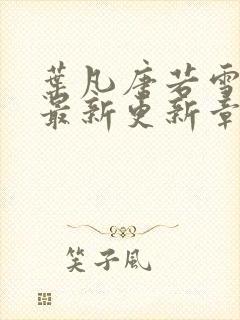 葉凡唐若雪
最新更新章
笑子風